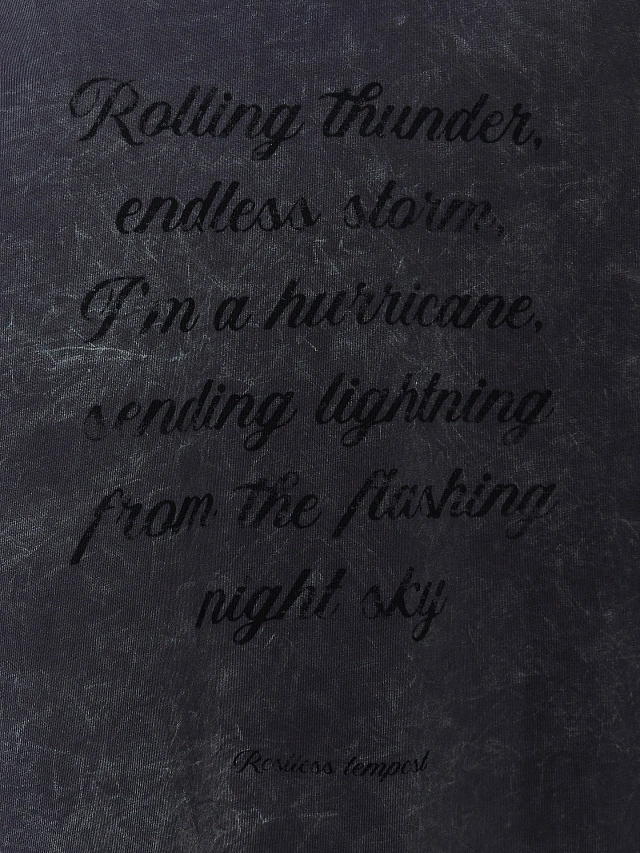 Rolling thunder,
endless storm,
I'm a hurricane,
sending lightning
from the flashing
night sky
Restless tempest